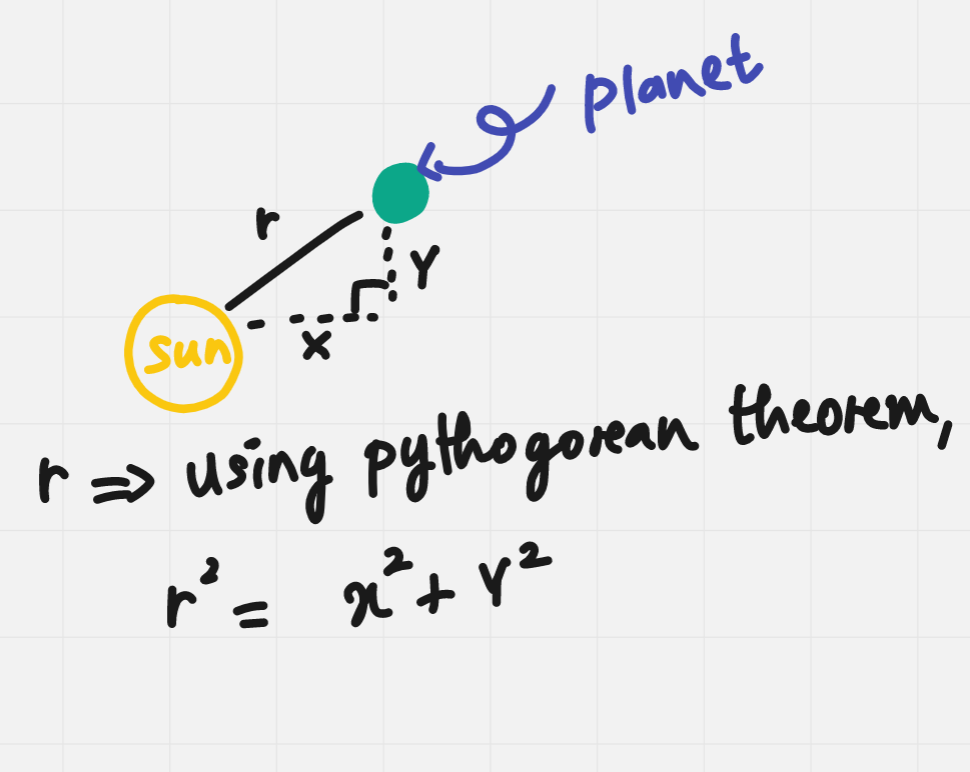 planet
r
Y
sun
x
r ⇒ using pythogorean theorem,
r² = x² + Y²